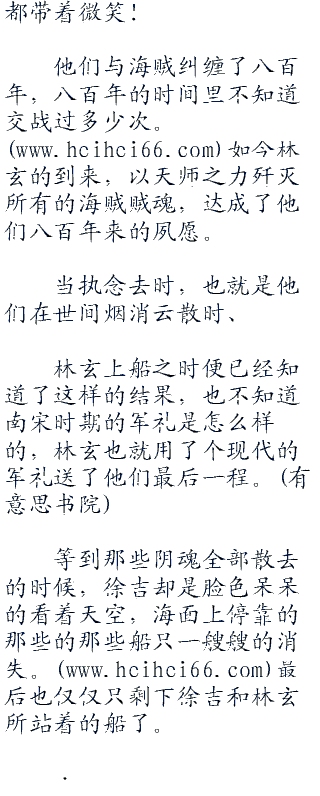 都带着微笑！
他们与海贼纠缠了八百
年，八百年的时间里不知道
交战过多少次。
(www.hcihci66.com)如今林
玄的到来，以天师之力歼灭
所有的海贼贼魂，达成了他
们八百年来的夙愿。
当执念去时，也就是他
们在世间烟消云散时、
林玄上船之时便已经知
道了这样的结果，也不知道
南宋时期的军礼是怎么样
的，林玄也就用了个现代的
军礼送了他们最后一程。(有
意思书院)
等到那些阴魂全部散去
的时候，徐吉却是脸色呆呆
的看着天空，海面上停靠的
那些的那些船只一艘艘的消
失。(www.hcihci66.com)最
后也仅仅只剩下徐吉和林玄
所站着的船了。
.